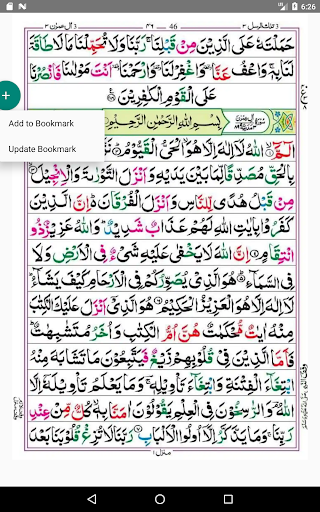 6:26
تلك الرسل ٣ ٤٦ 46 اٰل عمرٰن ٣
حَمَلْتَهٗ عَلَى الَّذِیْنَ مِنْ قَبْلِنَا ۚ رَبَّنَا وَلَا تُحَمِّلْنَا مَا لَا طَاقَةَ
لَنَا بِهٖ ۚ وَاعْفُ عَنَّا ۥ وَاغْفِرْ لَنَا ۥ وَارْحَمْنَا ۥ اَنْتَ مَوْلٰىنَا فَانْصُرْنَا
عَلَى الْقَوْمِ الْكٰفِرِیْنَ
بِسْمِ اللّٰهِ الرَّحْمٰنِ الرَّحِیْمِ
Add to Bookmark
Update Bookmark
الٓمّٓ اللّٰهُ لَاۤ اِلٰهَ اِلَّا هُوَ الْحَیُّ الْقَیُّوْمُ
بِالْحَقِّ مُصَدِّقًا لِّمَا بَیْنَ یَدَیْهِ وَاَنْزَلَ التَّوْرٰىةَ وَالْاِنْجِیْلَ
مِنْ قَبْلُ هُدًی لِّلنَّاسِ وَاَنْزَلَ الْفُرْقَانَ ۥ اِنَّ الَّذِیْنَ
كَفَرُوْا بِاٰیٰتِ اللّٰهِ لَهُمْ عَذَابٌ شَدِیْدٌ ؕ وَاللّٰهُ عَزِیْزٌ ذُو
انْتِقَامٍ اِنَّ اللّٰهَ لَا یَخْفٰی عَلَیْهِ شَیْءٌ فِی الْاَرْضِ وَلَا
فِی السَّمَآءِ هُوَ الَّذِیْ یُصَوِّرُكُمْ فِی الْاَرْحَامِ كَیْفَ یَشَآءُ
لَاۤ اِلٰهَ اِلَّا هُوَ الْعَزِیْزُ الْحَكِیْمُ هُوَ الَّذِیْۤ اَنْزَلَ عَلَیْكَ الْكِتٰبَ
مِنْهُ اٰیٰتٌ مُّحْكَمٰتٌ هُنَّ اُمُّ الْكِتٰبِ وَاُخَرُ مُتَشٰبِهٰتٌ
فَاَمَّا الَّذِیْنَ فِیْ قُلُوْبِهِمْ زَیْغٌ فَیَتَّبِعُوْنَ مَا تَشَابَهَ مِنْهُ
ابْتِغَآءَ الْفِتْنَةِ وَابْتِغَآءَ تَاْوِیْلِهٖ ۚ وَمَا یَعْلَمُ تَاْوِیْلَهٗۤ اِلَّا
اللّٰهُ ۘ وَالرّٰسِخُوْنَ فِی الْعِلْمِ یَقُوْلُوْنَ اٰمَنَّا بِهٖ ۙ كُلٌّ مِّنْ عِنْدِ
رَبِّنَا ۚ وَمَا یَذَّكَّرُ اِلَّاۤ اُولُوا الْاَلْبَابِ رَبَّنَا لَا تُزِغْ قُلُوْبَنَا بَعْدَ
منزل ١